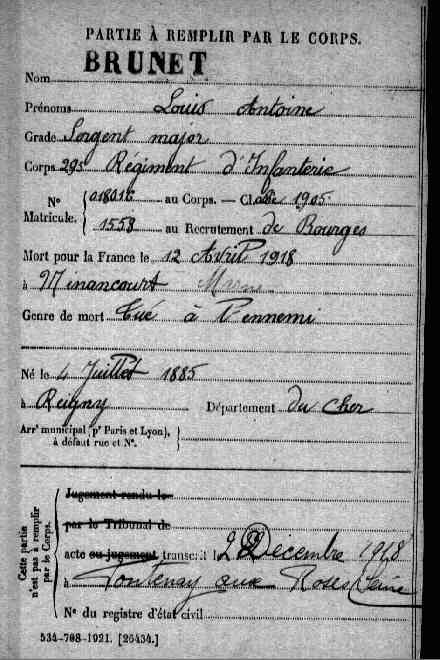 PARTIE À REMPLIR PAR LE CORPS.
BRUNET
Nom
Prénoms Louis Antoine
Grade Sergent major
Corps 295 Régiment d'Infanterie
N° Matricule. 018016 au Corps. — Classe 1905
1558 au Recrutement de Bourges
Mort pour la France le 12 Avril 1918
à Minancourt Marne
Genre de mort Tué à l'ennemi
Né le 4 Juillet 1885
à Reigny Département du Cher
Arrt municipal (pr Paris et Lyon),
à défaut rue et N°.
Cette partie n'est pas à remplir par le Corps.
Jugement rendu le
par le Tribunal de
acte ou jugement transcrit le 2 Décembre 1918
à Fontenay aux Roses Seine
N° du registre d'état civil
534-708-1921. [26434.]